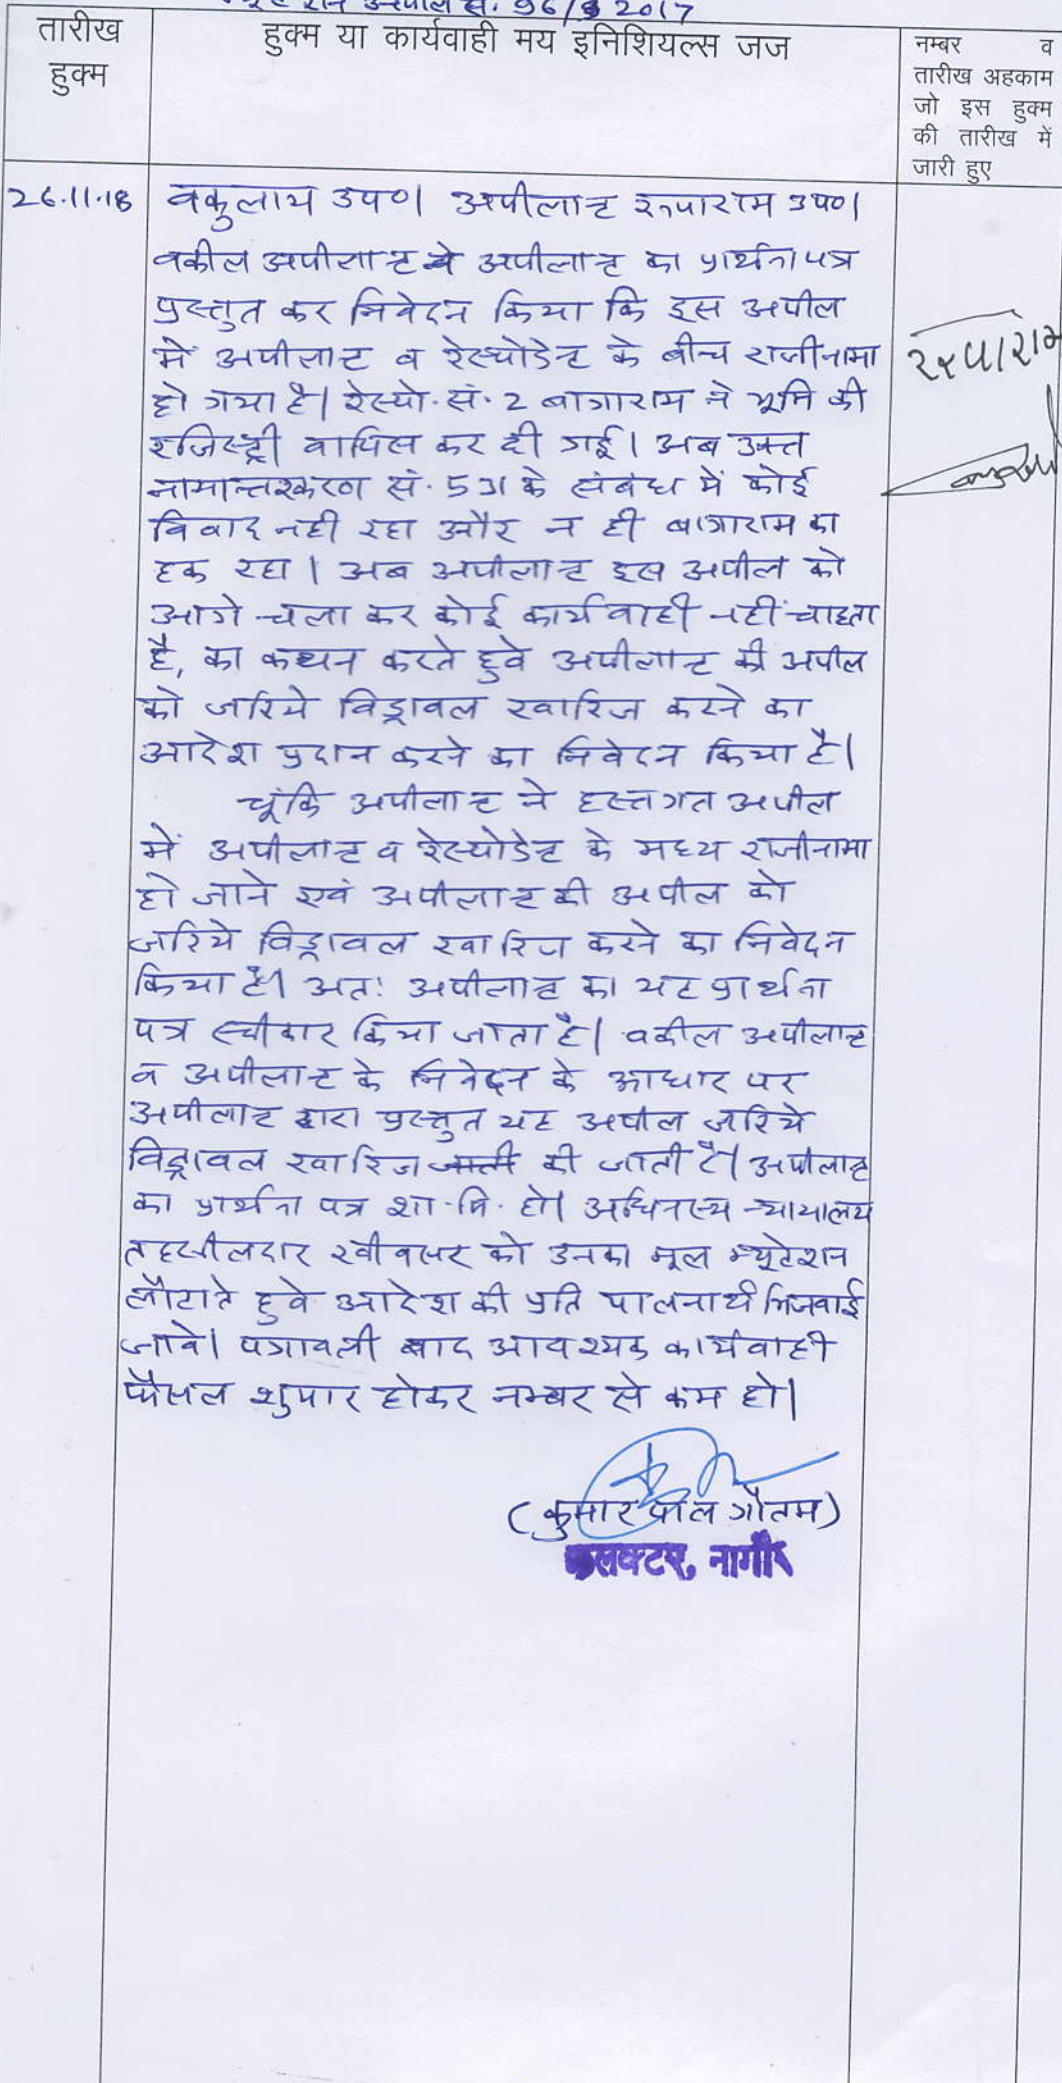 अपील सं. 96/2017
तारीख हुक्म
हुक्म या कार्यवाही मय इनिशियल्स जज
नम्बर व
तारीख अहकाम
जो इस हुक्म
की तारीख में
जारी हुए
26.11.18
वकुलाय उप०। अपीलान्ट रूपाराम उप०।
वकील अपीलान्ट ने अपीलान्ट का प्रार्थना पत्र
प्रस्तुत कर निवेदन किया कि इस अपील
में अपीलान्ट व रेस्पोडेन्ट के बीच राजीनामा
हो गया है। रेस्पो. सं. 2 बागाराम ने भूमि की
रजिस्ट्री वापिस कर दी गई। अब उक्त
नामान्तरकरण सं. के संबंध में कोई
विवाद नही रहा और न ही बागाराम का
हक रहा। अब अपीलान्ट इस अपील को
आगे चला कर कोई कार्यवाही नहीं चाहता
है, का कथन करते हुवे अपीलान्ट की अपील
को जरिये विड्रावल खारिज करने का
आदेश प्रदान करने का निवेदन किया है।
चूंकि अपीलान्ट ने हस्तगत अपील
में अपीलान्ट व रेस्पोडेन्ट के मध्य राजीनामा
हो जाने एवं अपीलान्ट की अपील को
जरिये विड्रावल खारिज करने का निवेदन
किया है। अतः अपीलान्ट का यह प्रार्थना
पत्र स्वीकार किया जाता है। वकील अपीलान्ट
व अपीलान्ट के निवेदन के आधार पर
अपीलान्ट द्वारा प्रस्तुत यह अपील जरिये
विड्रावल खारिज की जाती है। अपीलान्ट
का प्रार्थना पत्र शा.मि. हो। अधिनस्थ न्यायालय
तहसीलदार खींवसर को उनका मूल म्यूटेशन
लौटाते हुवे आदेश की प्रति पालनार्थ भिजवाई
जावे। पत्रावली बाद आवश्यक कार्यवाही
फैसल शुमार होकर नम्बर से कम हो।
रूपाराम
(कुमार पाल गौतम)
कलक्टर, नागौर